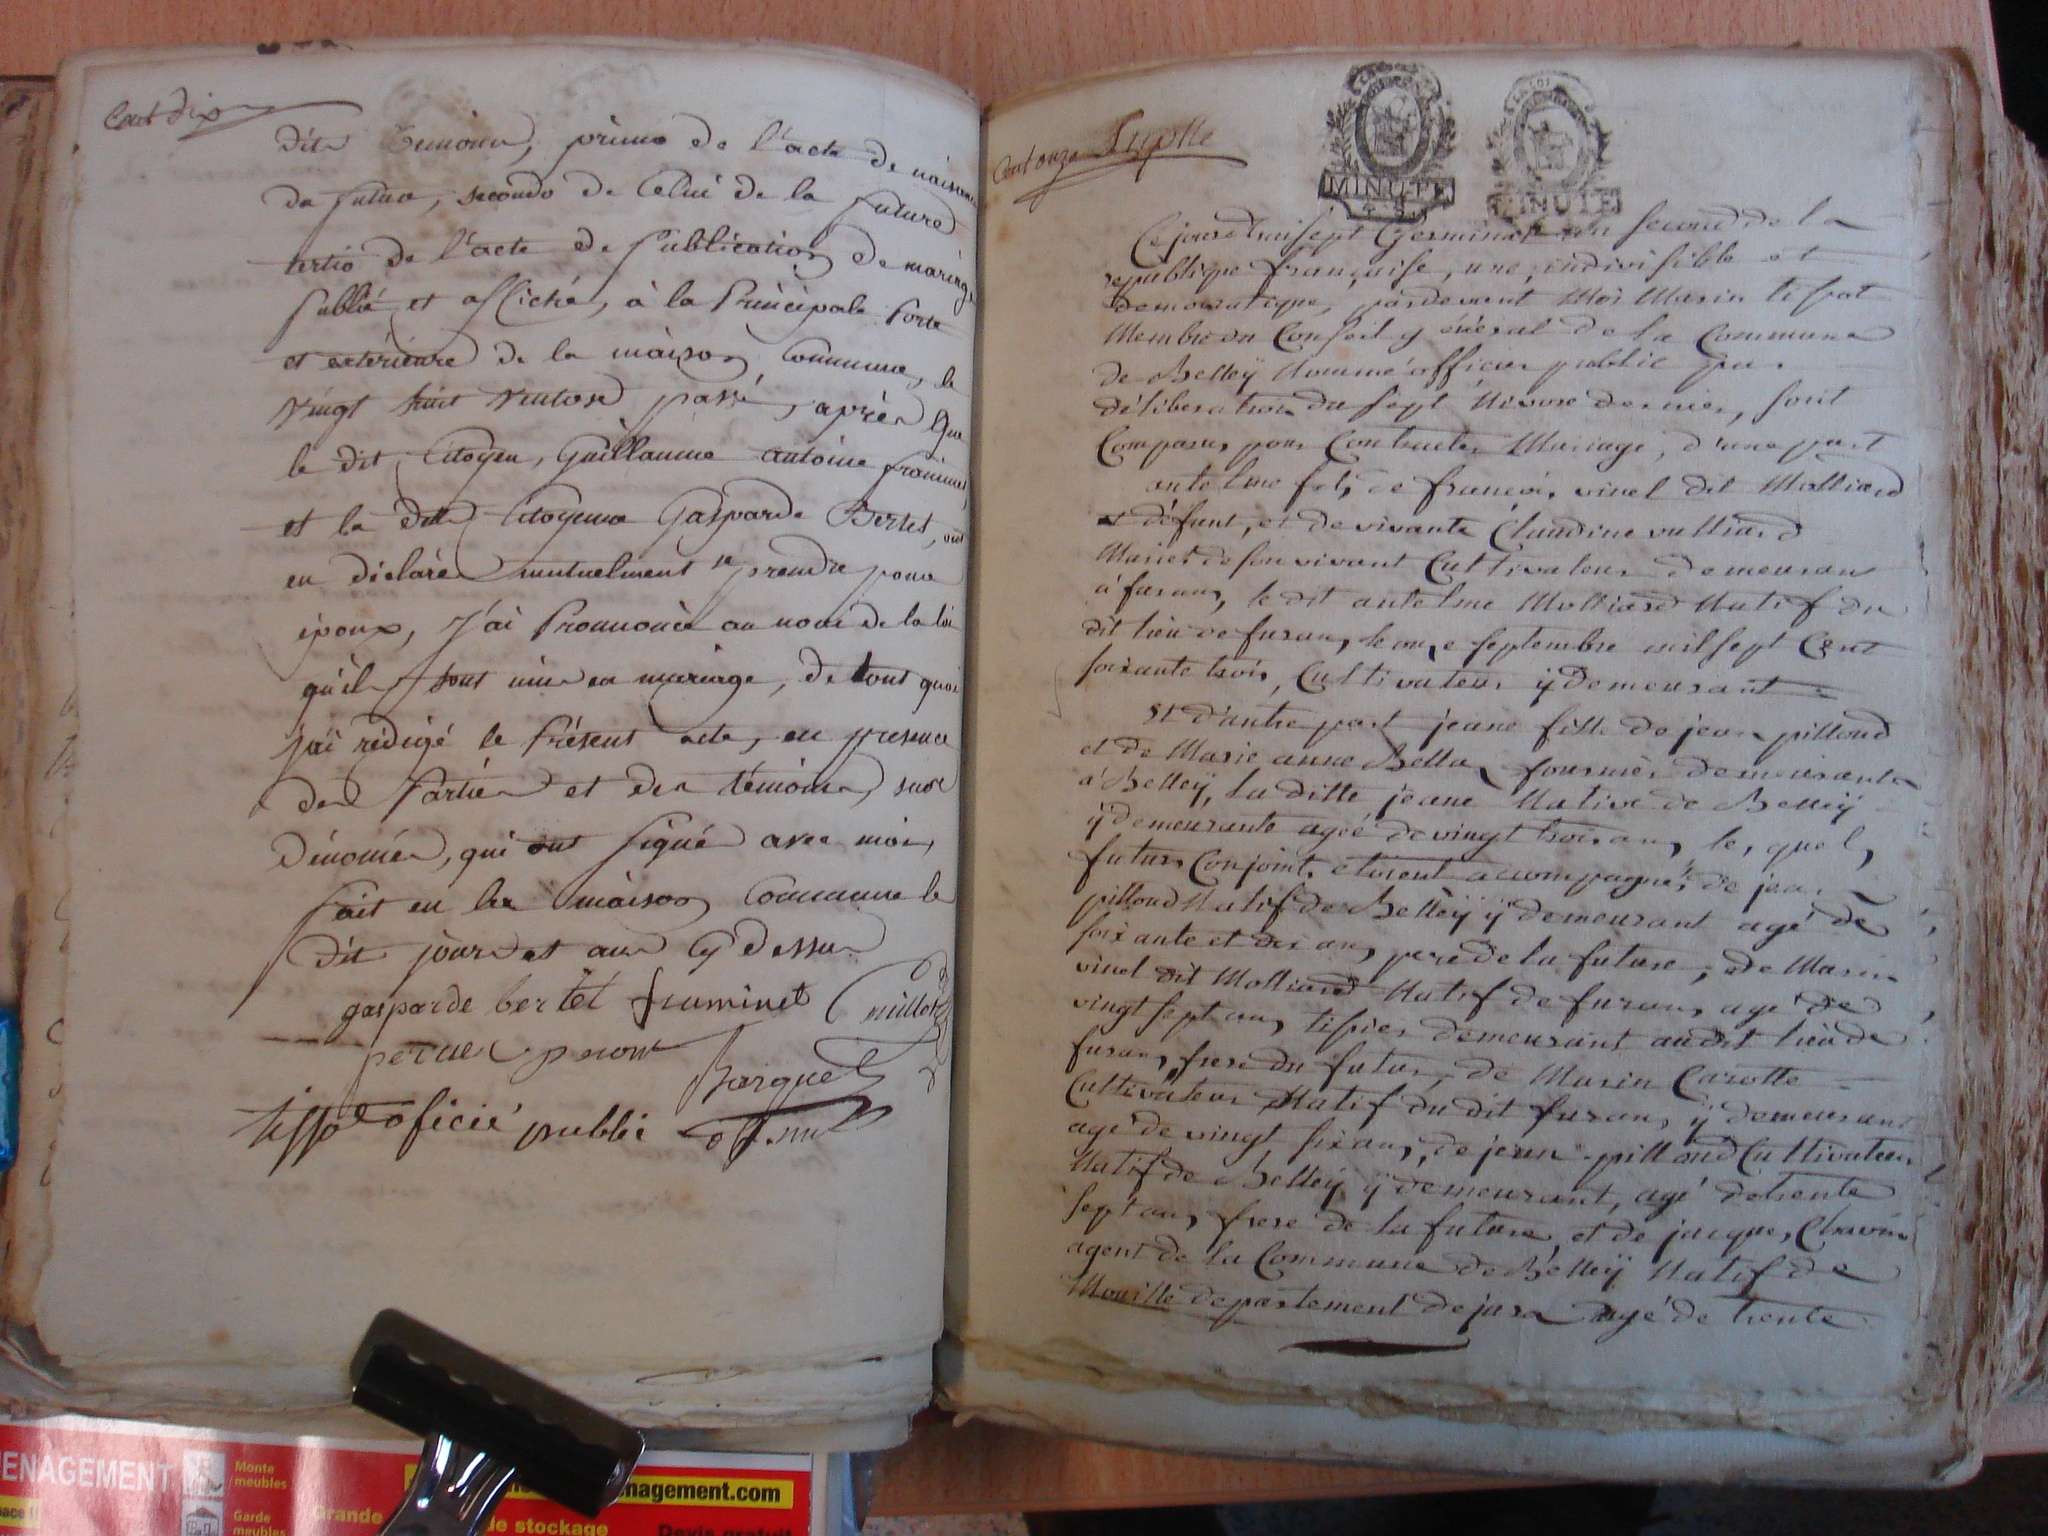 Cent dix
dits témoins, primo de l'acte de naissance
du futur, secondo de Celui de la future
tertio de l'acte de Publication de mariage
publié et affiché, à la Principale Porte
et extérieure de la maison Commune, le
vingt huit ventose passé, après que
le dit Citoyen, Guillaume antoine fraiminet
et la dite Citoyenne Gasparde Bertet, ont
eu déclaré mutuelment se prendre pour
époux, J'ai Prononcé au nom de la loi
qu'ils sont unis en mariage, de tout quoi
j'ai rédigé le Présent acte, en presence
des Parties et des témoins, sus
dénomés, qui ont signé avec moi,
fait en la maison Commune le
dit jour et an Cy dessus
gasparde bertet fruminet
Barquet
tissot oficié public
Cent onze
MINUTE
MINUTE
Ce jourdhui sept Germinal an second de la
republique française, une, indivisible et
democratique, pardevant Moi Marin tissot
Membre du Conseil général de la Commune
de Belley Nommé officier public par
déliberation du sept Nivose dernier, sont
Comparus pour Contracter Mariage, d'une part
antelme fils de françois vinel dit Molliard
et défunt, et de vivante Claudine vulliard
Mariés de son vivant Cultivateur demeurant
à furans, le dit antelme Molliard Natif du
dit lieu de furans, le onze septembre mil sept Cent
soixante trois, Cultivateur ÿ demeurant
et d'autre part jeane fille de jean pilloud
et de Marie anne Bellon fourniés demeurants
à Belleÿ, la ditte jeane Native de Belleÿ
ÿ demeurante ageé de vingt trois ans, les quels
futurs Conjoints etoient accompagnés de jean
pilloud Natif de Belleÿ ÿ demeurant agé de
soixante et dix ans, pere de la future, de Marin
vinel dit Molliard Natif de furans agé de
vingt sept ans, tissier demeurant audit lieu de
furans, frere du futur, de Marin Carotte
Cultivateur Natif du dit furans, ÿ demeurant
agé de vingt six ans, de jean pilloud Cultivateur
Natif de Belleÿ ÿ demeurant, agé de trente
sept ans, frere de la future, et de jacques
agent de la Commune de Belleÿ Natif de
Mouille departement de jura agé de trente
ENAGEMENT
Monte
meubles
Garde
meubles
Grande
nagement.com
de stockage
Devis gratuit